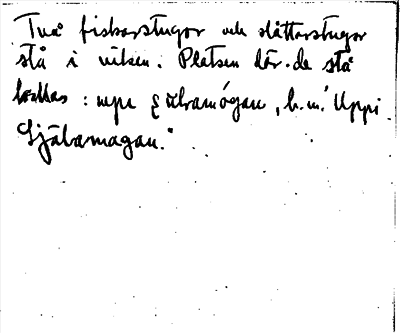 Två fiskarstugor och slåtterstugor
stå i viken. Platsen där de stå
kallas: uppi
b.m.' Uppi
Själamagan."